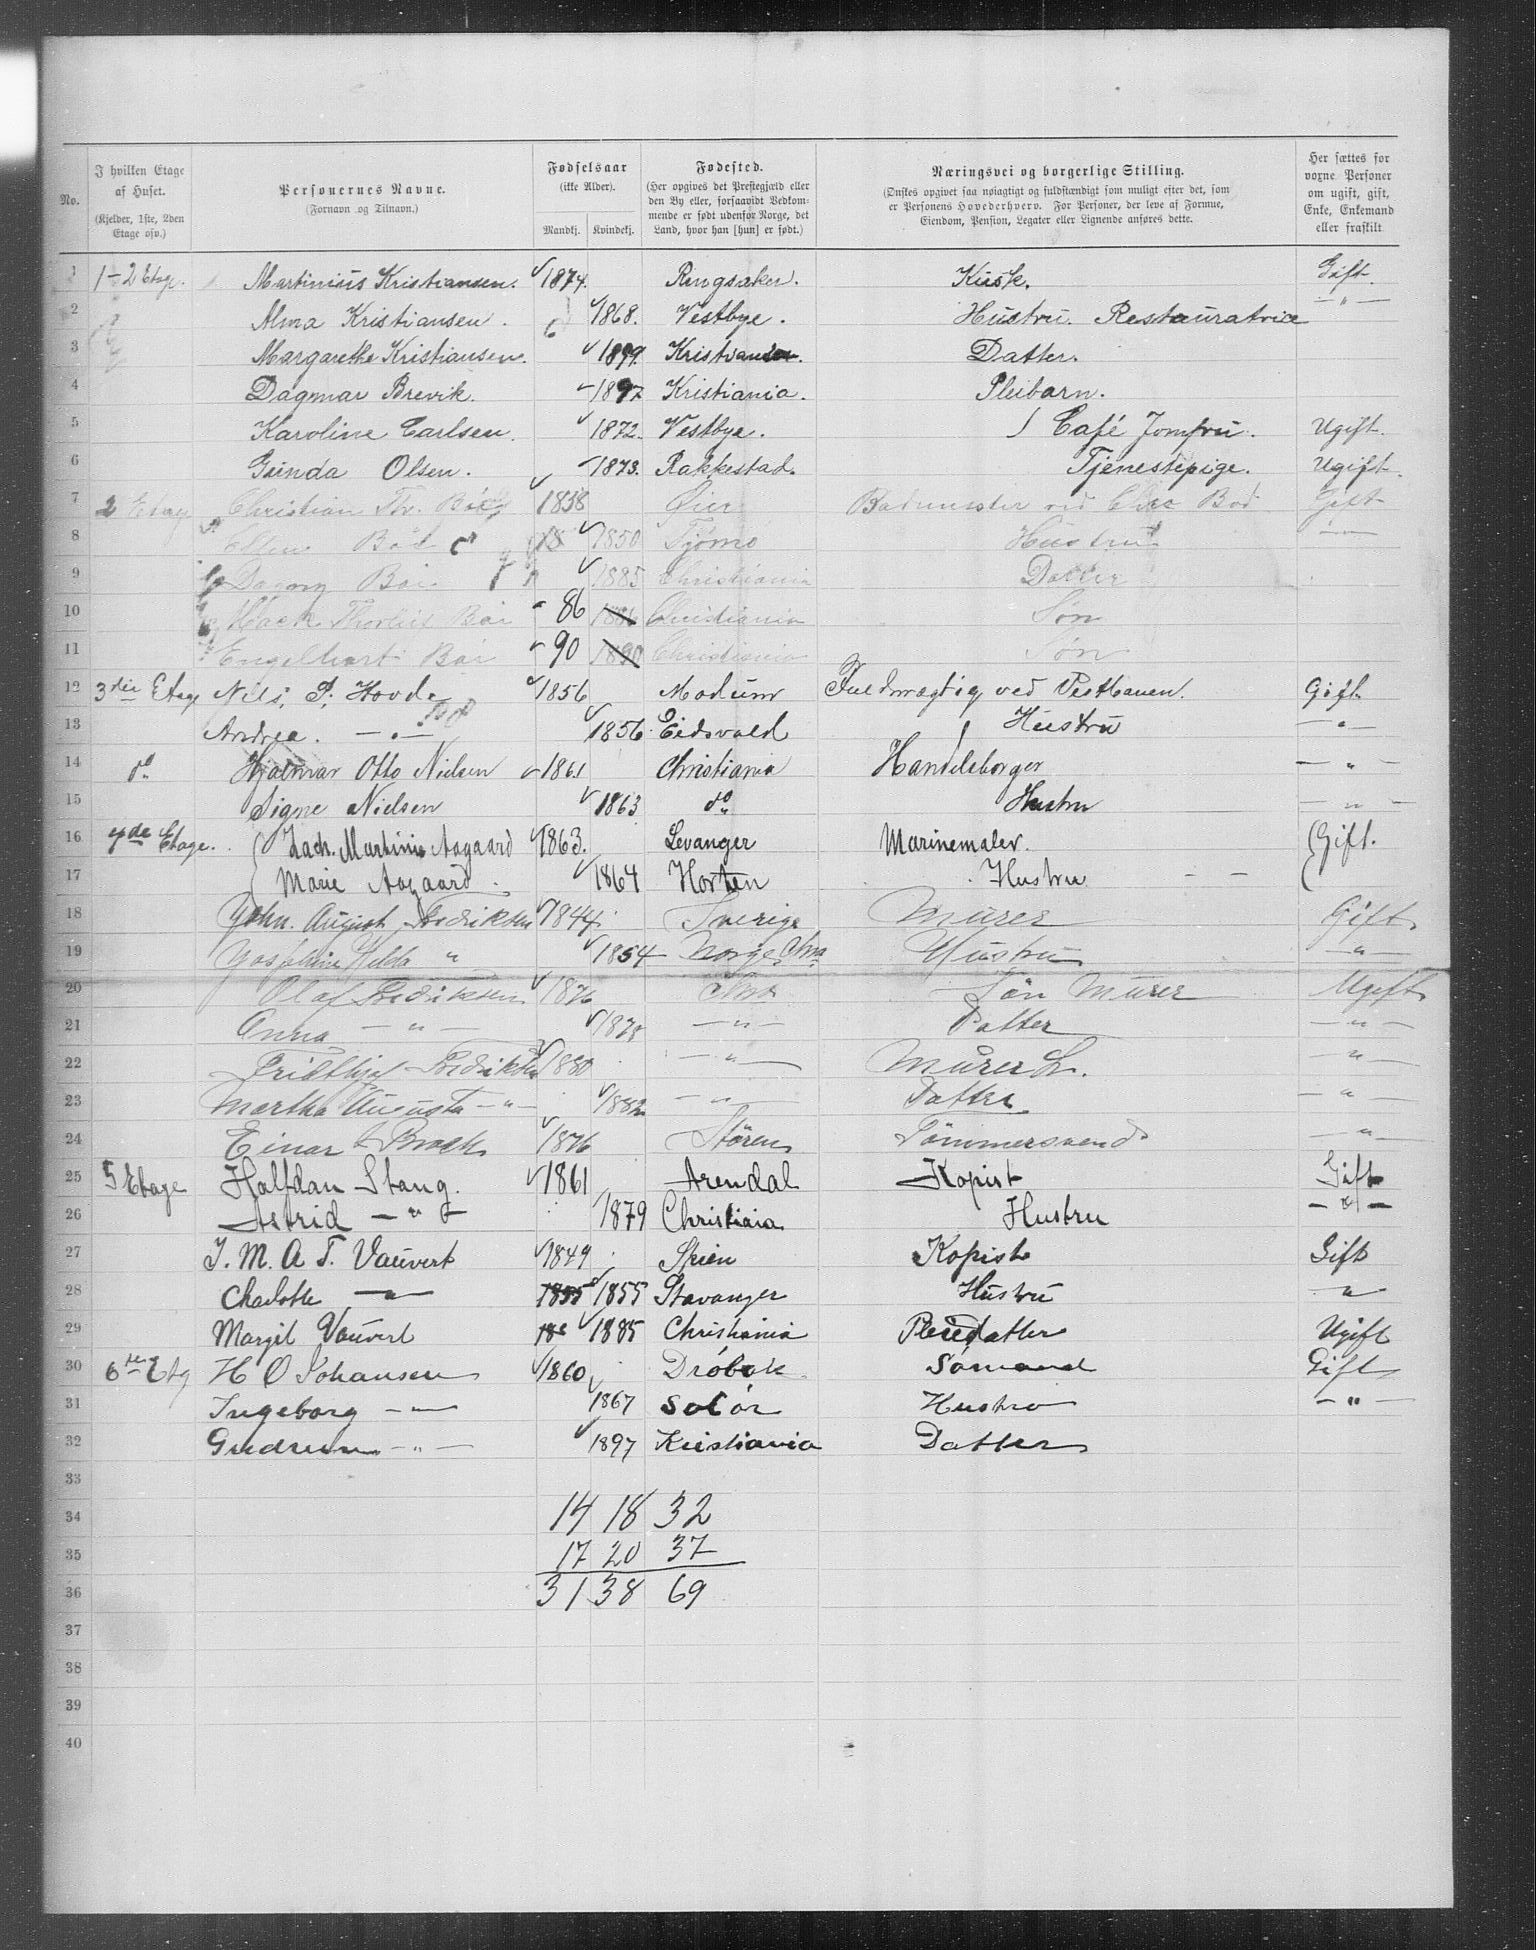 No.
I hvilken Etage af Huset. (Kjelder, 1ste, 2den Etage osv.)
Personernes Navne. (Fornavn og Tilnavn.)
Fødselsaar (ikke Alder). Mandkj. Kvindekj.
Fødested. (Her opgives det Prestegjæld eller den By eller, forsaavidt Vedkommende er født udenfor Norge, det Land, hvor han [hun] er født.)
Næringsvei og borgerlige Stilling. (Ønskes opgivet saa nøiagtigt og fuldstændigt som muligt efter det, som er Personens Hovederhverv. For Personer, der leve af Formue, Eiendom, Pension, Legater eller Lignende anføres dette.)
Her sættes for vorne Personer om ugift, gift, Enke, Enkemand eller fraskilt
1 1-2 Etage. Martinius Kristiansen. 1874. Ringsaker. Kusk. Gift
2 Alma Kristiansen. 1868. Vestbye. Hustru. Restauratrice — " —
3 Margarethe Kristiansen. 1899. Datter.
4 Dagmar Brevik. 1897 Kristiania. Pleibarn.
5 Karoline Carlsen. 1872. Vestbye. Café Jomfru. Ugift.
6 Olsen. 1873. Rakkestad. Tjenestepige. Ugift.
7 2 Etag Christian Thv. 1838 Øier Bademester ved Bad Gift
8 1850 Tjømø Hustru
9 Dagny 1885 Christiania Datter
10 86 1886 Christiania Søn
11 Engelhart 90 1890 Christiania Søn
12 3die Etage Nils P. Hovde 1856 Modum Fuldmægtig ved Vestbanen. Gift
13 Andrea. — " — 1856 Eidsvold Hustru — " —
14 do Hjalmar Otto Nielsen 1861 Christiania Handelsborger — " —
15 Signe Nielsen 1863 do Hustru — " —
16 4de Etage. Zach. Martinius Aagaard 1863. Levanger Marinemaler. Gift.
17 Marie Aagaard 1864 Horten Hustru
18 John. August Fredriksen 1844 Sverige Murer Gift
19 Josphine Hilda " 1854 Norge Chra Hustru — " —
20 Olaf Fredriksen 1876 Chra Søn Murer Ugift
21 Anna — " — 1878 — " — Datter — " —
22 Fridthjof Fredriksen 1880 — " — Murer L. — " —
23 Martha Augusta — " — 1882 — " — Datter — " —
24 Einar Brock 1876 Støren Tømmersvend — " —
25 5 Etage Halfdan Stang. 1861 Arendal Kopist Gift
26 Astrid — " — 1879 Christiania Hustru — " —
27 J. M. A. T. Vauvert 1849 Skien Kopist Gift
28 Charlotte — " — 1855 1855 Stavanger Hustru "
29 Margit Vauvert 188 1885 Christiania Pleiedatter Ugift
30 6te Etg H O Johansen 1860 Drøbak Sømand Gift
31 Ingeborg — " — 1867 Solør Hustro — " —
32 Gudrun — " — 1897 Kristiania Datter
33
34 14 18 32
35 17 20 37
36 31 38 69
37
38
39
40